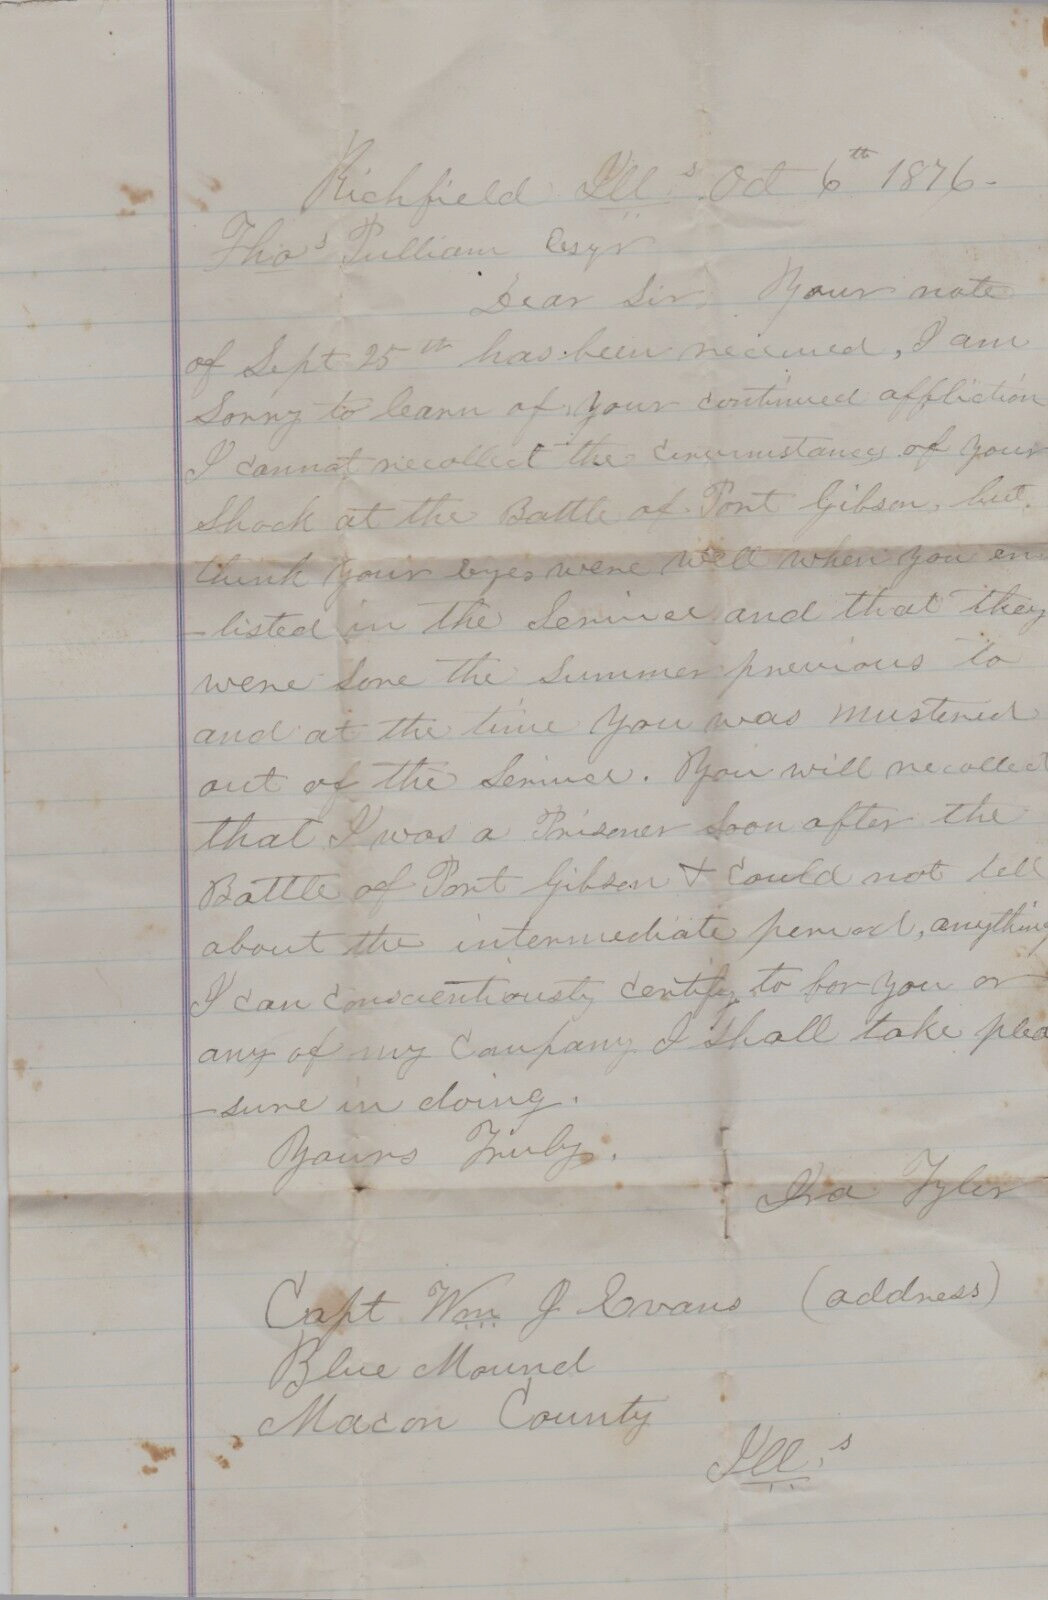 Richfield Ill.s Oct 6th 1876-
Thos Pulliam Esqr
Dear Sir, Your note
of Sept 25th has been received, I am
Sorry to learn of your continued affliction
I cannot recollect the circumstances of your
Shock at the Battle of Port Gibson, but
think your Eyes were well when you en
-listed in the Service and that they
were Sore the Summer previous to
and at the time you was mustered
out of the Service. You will recollect
that I was a Prisoner Soon after the
Battle of Port Gibson & Could not tell
about the intermediate period, anything
I can conscientiously certify to for you or
any of my Company I Shall take plea
-sure in doing.
Yours Truly,
Ira Tyler
Capt Wm J Evans (address)
Blue Mound
Macon County
Ill.s